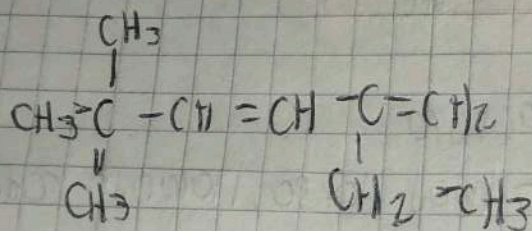 CH3
CH3-C-CH=CH-C=CH2
CH3 CH2-CH3